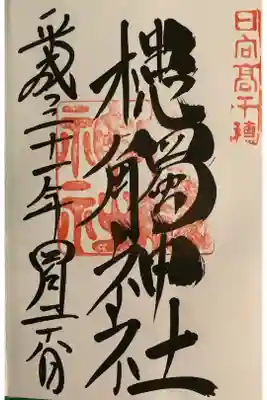 日向高千穂
槵觸神社
平成三十一年四月二十六日